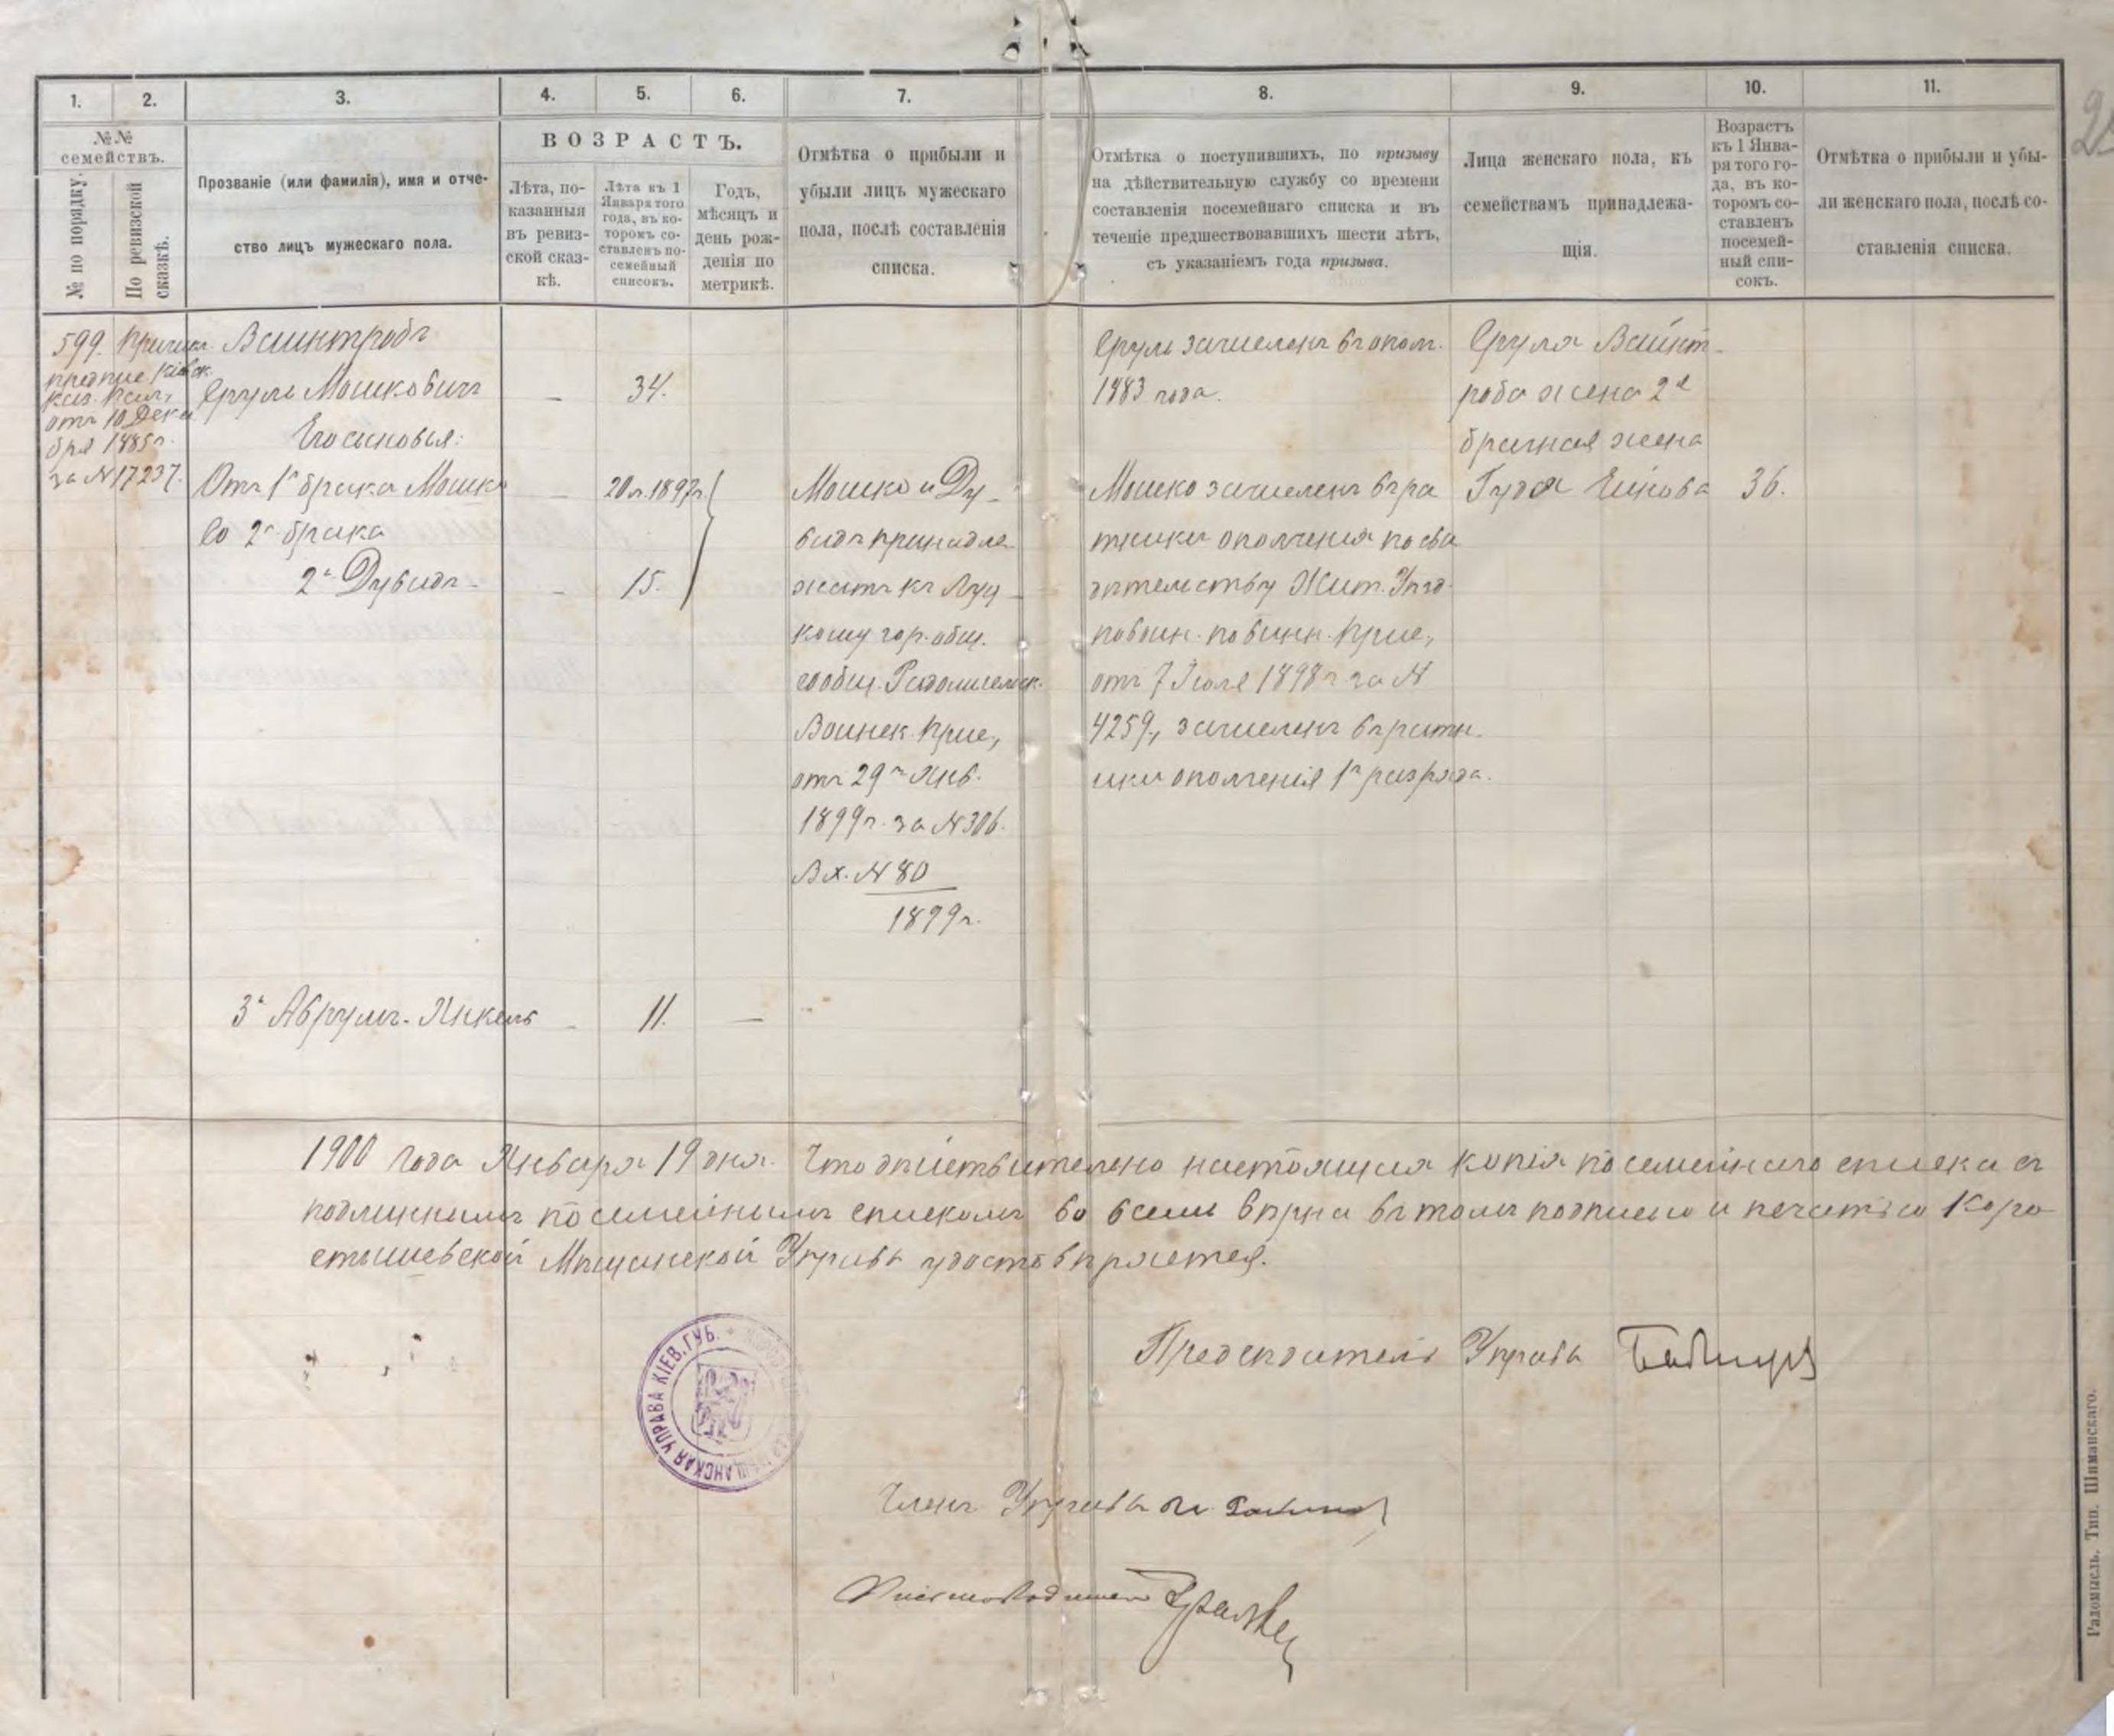 1. 2. 3. 4. 5. 6. 7. 8. 9. 10. 11.
№№ семействъ.
№ по порядку.
По ревизской сказкѣ.
Прозваніе (или фамилія), имя и отче-
ство лицъ мужескаго пола.
ВОЗРАСТЪ.
Лѣта, по-
казанныя
въ ревиз-
ской сказ-
кѣ.
Лѣта къ 1
Января того
года, въ ко-
торомъ со-
ставленъ по-
семейный
списокъ.
Годъ,
мѣсяцъ и
день рож-
денія по
метрикѣ.
Отмѣтка о прибыли и
убыли лицъ мужескаго
пола, послѣ составленія
списка.
Отмѣтка о поступившихъ, по призыву
на дѣйствительную службу со времени
составленія посемейнаго списка и въ
теченіе предшествовавшихъ шести лѣтъ,
съ указаніемъ года призыва.
Лица женскаго пола, къ
семействамъ принадлежа-
щія.
Возрастъ
къ 1 Янва-
ря того го-
да, въ ко-
торомъ со-
ставленъ
посемей-
ный спи-
сокъ.
Отмѣтка о прибыли и убы-
ли женскаго пола, послѣ со-
ставленія списка.
599. Причисл.
предпис. Кіевск.
каз. пал.,
отъ 10 Дека
бря 1885 г.
за № 17237.
Ваинтробъ
Сруль Мошковичъ
34.
Его сыновья:
Отъ 1го брака Мошко
20 л. 1897 г.
Со 2го брака
2й Дувидъ
15.
3й Абрумъ-Янкель
11.
Мошко и Ду-
видъ принадле
жатъ къ Луц
кому гор. общ.
сообщ. Радомысльск.
Воинск. Прис.,
отъ 29го Янв.
1899 г. за № 306.
Вх. № 80
1899 г.
Сруль зачисленъ въ опол.
1883 года.
Мошко зачисленъ въ ра
тники ополченія по сви
дѣтельству Жит. Уѣзд.
по воин. повинн. Прис.,
отъ 7 Іюля 1898 г. за №
4259, зачисленъ въ ратн.
ики ополченія 1го разряда.
Сруля Вайнт-
роба жена 2й
брачная жена
Гудя
36.
1900 года Января 19 дня. Что дѣйствительно настоящая копія посемейнаго списка съ
подлиннымъ посемейнымъ спискомъ во всемъ вѣрна въ томъ подписью и печатью Коро
стышевской Мѣщанской Управы удостовѣряется.
Предсѣдатель Управы
МѢЩАНСКАЯ УПРАВА КІЕВ. ГУБ.
Членъ Управы
Письмоводитель
Радомысль. Тип. Шиманскаго.